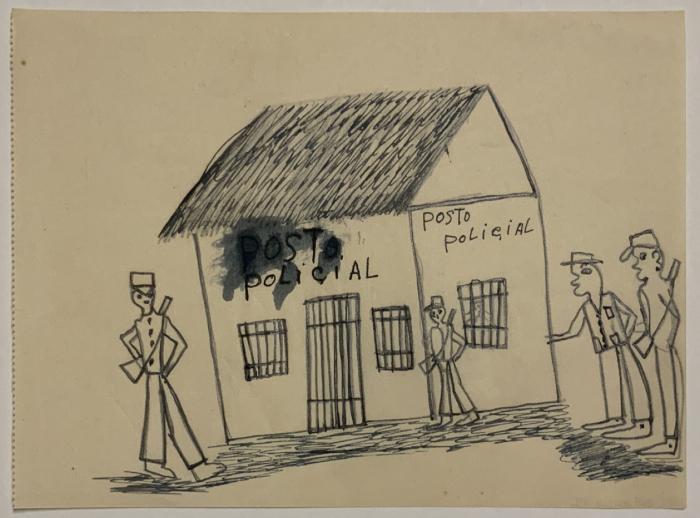 POSTO
POLiCiAL
POSTO
POLiCiAL